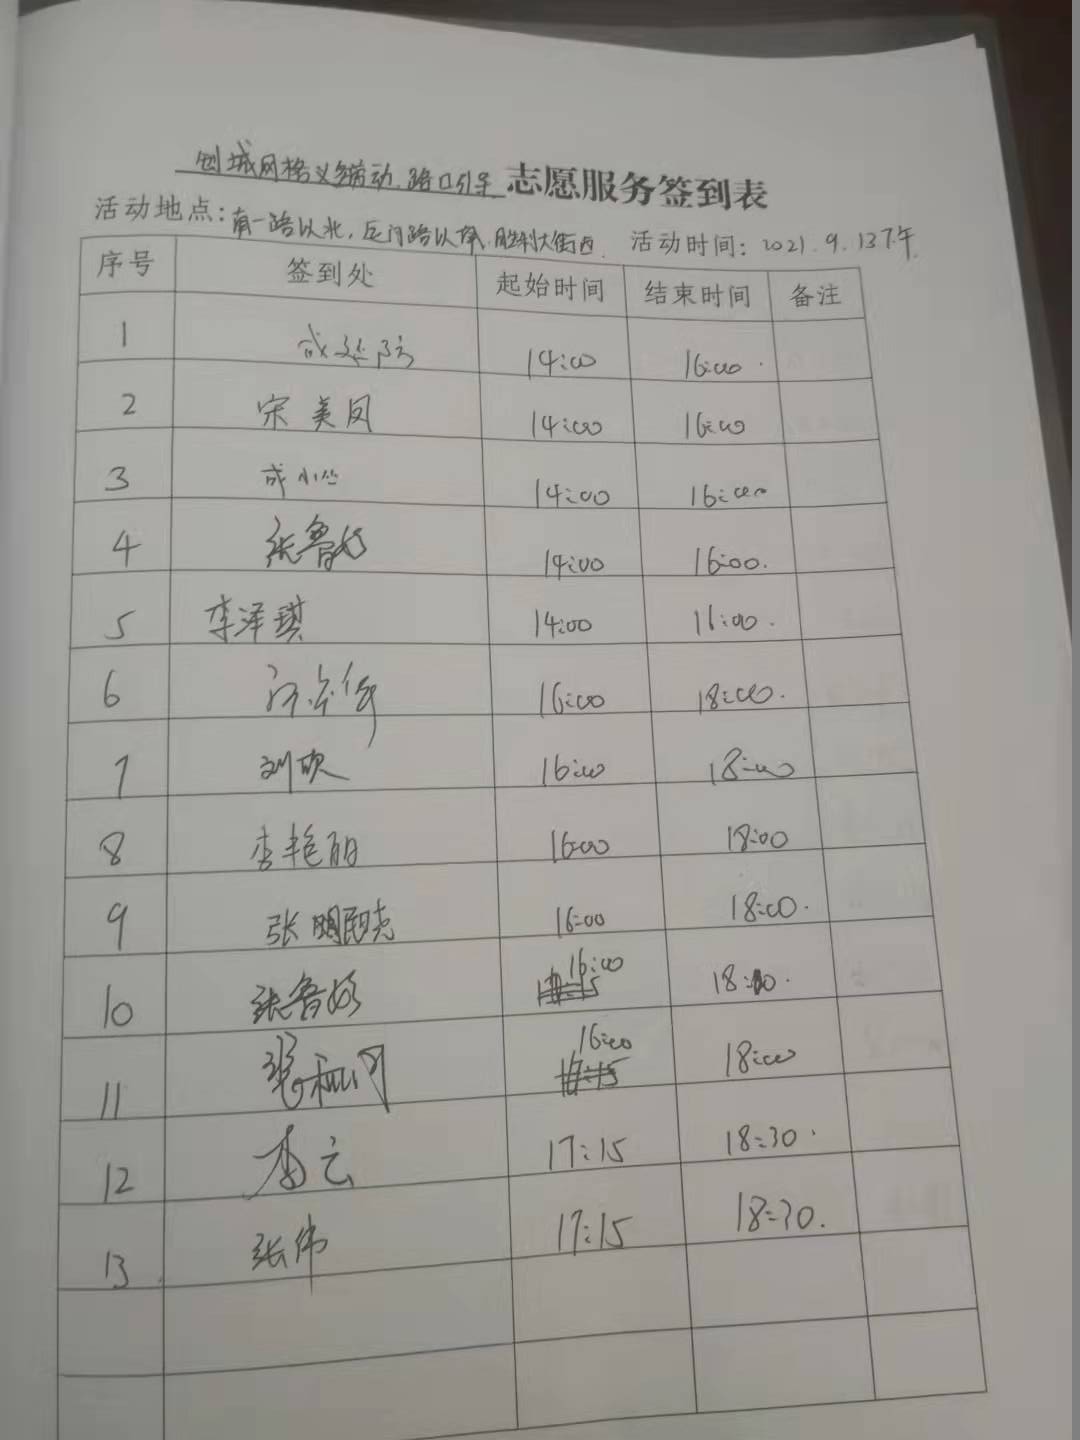 创城网格义务劳动、路口引导 志愿服务签到表
活动地点: 有一路以北, 门路以 胜利大街西. 活动时间: 2021.9.13下午
序号 签到处 起始时间 结束时间 备注
1 成 14:00 16:00.
2 宋美凤 14:00 16:00
3 成小 14:00 16:00
4 张鲁 14:00 16:00.
5 李泽琪 14:00 16:00.
6 16:00 18:00.
7 刘欢 16:00 18:00
8 李艳丽 16:00 18:00
9 张 16:00 18:00.
10 张鲁 16:00 18:00.
11 16:00 18:00
12 李云 17:15 18:30.
13 张伟 17:15 18:30.